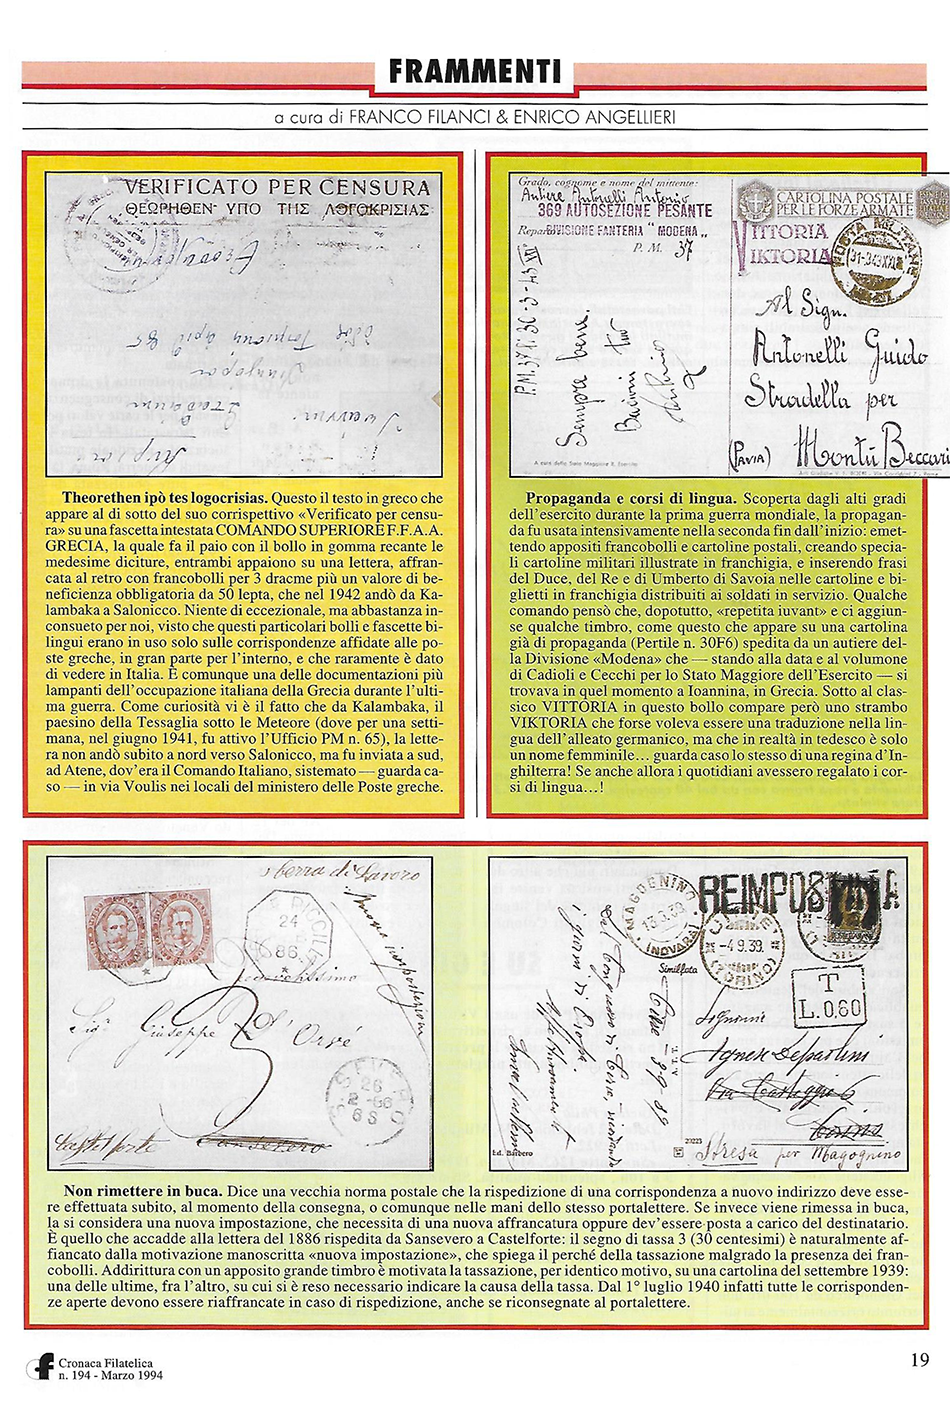 FRAMMENTI
a cura di FRANCO FILANCI & ENRICO ANGELLIERI
VERIFICATO PER CENSURA
ΘΕΩΡΗΘΕΝ ΥΠΟ ΤΗΣ ΛΟΓΟΚΡΙΣΙΑΣ
Theorethen ipò tes logocrisias. Questo il testo in greco che
appare al di sotto del suo corrispettivo «Verificato per censu-
ra» su una fascetta intestata COMANDO SUPERIORE F.F.A.A.
GRECIA, la quale fa il paio con il bollo in gomma recante le
medesime diciture, entrambi appaiono su una lettera, affran-
cata al retro con francobolli per 3 dracme più un valore di be-
neficienza obbligatoria da 50 lepta, che nel 1942 andò da Ka-
lambaka a Salonicco. Niente di eccezionale, ma abbastanza in-
consueto per noi, visto che questi particolari bolli e fascette bi-
lingui erano in uso solo sulle corrispondenze affidate alle po-
ste greche, in gran parte per l'interno, e che raramente è dato
di vedere in Italia. È comunque una delle documentazioni più
lampanti dell'occupazione italiana della Grecia durante l'ulti-
ma guerra. Come curiosità vi è il fatto che da Kalambaka, il
paesino della Tessaglia sotto le Meteore (dove per una setti-
mana, nel giugno 1941, fu attivo l'Ufficio PM n. 65), la lette-
ra non andò subito a nord verso Salonicco, ma fu inviata a sud,
ad Atene, dov'era il Comando Italiano, sistemato — guarda ca-
so — in via Voulis nei locali del ministero delle Poste greche.
Grado, cognome e nome del mittente:
Autiere Antonelli Antonio
369 AUTOSEZIONE PESANTE
Reparto DIVISIONE FANTERIA "MODENA"
P. M. 37
CARTOLINA POSTALE
PER LE FORZE ARMATE
VITTORIA
VIKTORIA
POSTA MILITARE
31-3-43 XXI
Sempre bene.
Bacioni
Tuo
Antonio
Al Sign.
Antonelli Guido
Stradella per
(PAVIA) Montù Beccari
A cura dello Stato Maggiore R. Esercito
Propaganda e corsi di lingua. Scoperta dagli alti gradi
dell'esercito durante la prima guerra mondiale, la propagan-
da fu usata intensivamente nella seconda fin dall'inizio: emet-
tendo appositi francobolli e cartoline postali, creando specia-
li cartoline militari illustrate in franchigia, e inserendo frasi
del Duce, del Re e di Umberto di Savoia nelle cartoline e bi-
glietti in franchigia distribuiti ai soldati in servizio. Qualche
comando pensò che, dopotutto, «repetita iuvant» e ci aggiun-
se qualche timbro, come questo che appare su una cartolina
già di propaganda (Pertile n. 30F6) spedita da un autiere del-
la Divisione «Modena» che — stando alla data e al volumone
di Cadioli e Cecchi per lo Stato Maggiore dell'Esercito — si
trovava in quel momento a Ioannina, in Grecia. Sotto al clas-
sico VITTORIA in questo bollo compare però uno strambo
VIKTORIA che forse voleva essere una traduzione nella lin-
gua dell'alleato germanico, ma che in realtà in tedesco è solo
un nome femminile... guarda caso lo stesso di una regina d'In-
ghilterra! Se anche allora i quotidiani avessero regalato i cor-
si di lingua...!
Terra di Lavoro
24
86
nuova impostazione
3
Sigr Giuseppe D'Orsé
Sansevero
Castelforte
SEVERO
26
2-86
6 S
MAGOGNINO
(NOVARA)
REIMPOSTATA
-4.9.39.
(TORINO)
T
L.0,60
Similfoto
Signorine
Agnese Depaolini
Via Casteggio 6
Torino
Stresa per Magognino
20223
Ed. Barbero
Non rimettere in buca. Dice una vecchia norma postale che la rispedizione di una corrispondenza a nuovo indirizzo deve esse-
re effettuata subito, al momento della consegna, o comunque nelle mani dello stesso portalettere. Se invece viene rimessa in buca,
la si considera una nuova impostazione, che necessita di una nuova affrancatura oppure dev'essere posta a carico del destinatario.
È quello che accadde alla lettera del 1886 rispedita da Sansevero a Castelforte: il segno di tassa 3 (30 centesimi) è naturalmente af-
fiancato dalla motivazione manoscritta «nuova impostazione», che spiega il perché della tassazione malgrado la presenza dei fran-
cobolli. Addirittura con un apposito grande timbro è motivata la tassazione, per identico motivo, su una cartolina del settembre 1939:
una delle ultime, fra l'altro, su cui si è reso necessario indicare la causa della tassa. Dal 1° luglio 1940 infatti tutte le corrisponden-
ze aperte devono essere riaffrancate in caso di rispedizione, anche se riconsegnate al portalettere.
Cronaca Filatelica
n. 194 - Marzo 1994
19